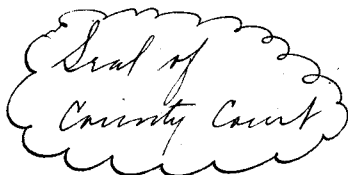 Seal of
County Court